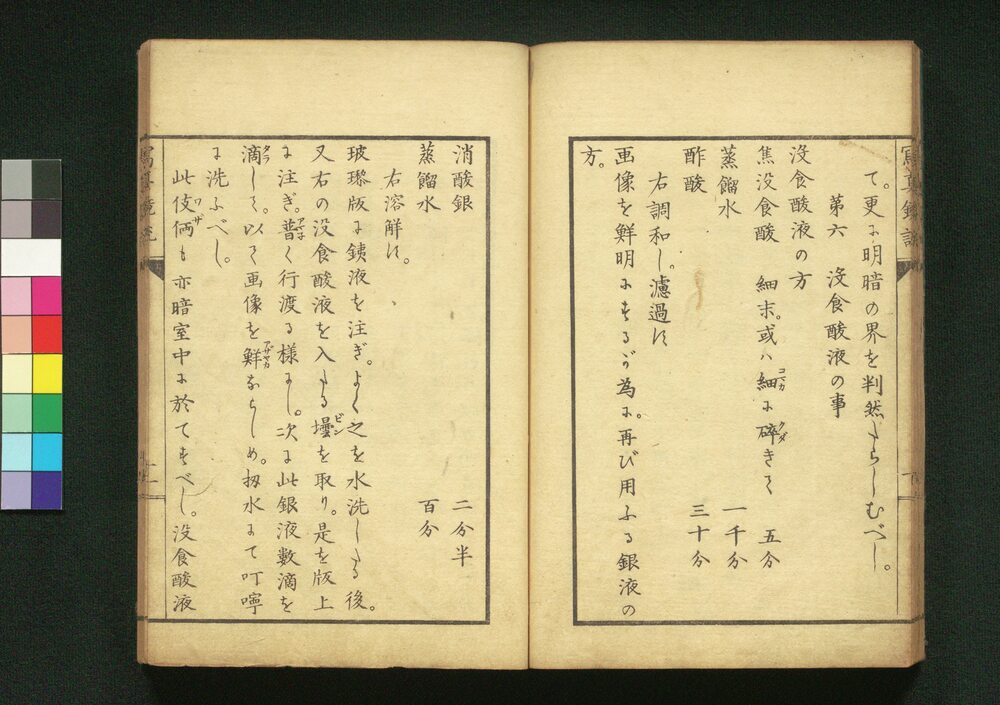 て。更に明暗の界を判然たらしむべし。
第六　没食酸液の事
没食酸液の方
焦没食酸　細末。或ハ細コマカに砕クダきて　五分
蒸餾水　一千分
酢酸　三十分
右調和し。濾過す
画像を鮮明にするが為に。再び用ふる銀液の
方。
消酸銀　二分半
蒸餾水　百分
右溶解す。
玻瓈版に銕液を注ぎ。よく之を水洗したる後。
又右の没食酸液を入たる壜ビンを取り。是を版上
に注ぎ。普アマネく行渡る様にし。次に此銀液数滴を
滴タラして。以て画像を鮮アザヤカならしめ。扨水にて叮嚀
に洗ふべし。
此伎倆ワザも亦暗室中に於てすべし。没食酸液